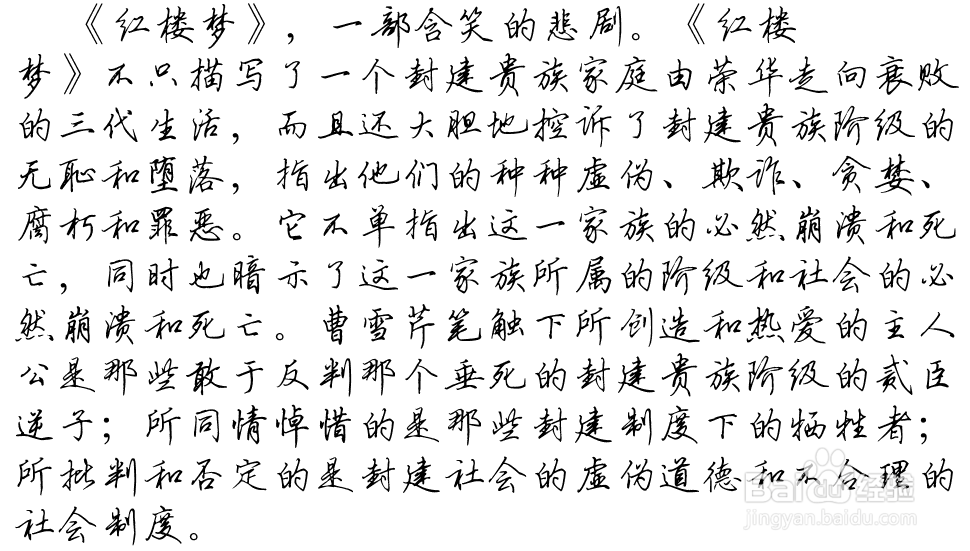 《红楼梦》，一部含笑的悲剧。《红楼
梦》不只描写了一个封建贵族家庭由荣华走向衰败
的三代生活，而且还大胆地控诉了封建贵族阶级的
无耻和堕落，指出他们的种种虚伪、欺诈、贪婪、
腐朽和罪恶。它不单指出这一家族的必然崩溃和死
亡，同时也暗示了这一家族所属的阶级和社会的必
然崩溃和死亡。曹雪芹笔触下所创造和热爱的主人
公是那些敢于反判那个垂死的封建贵族阶级的贰臣
逆子；所同情悼惜的是那些封建制度下的牺牲者；
所批判和否定的是封建社会的虚伪道德和不合理的
社会制度。
Baidu经验
jingyan.baidu.com